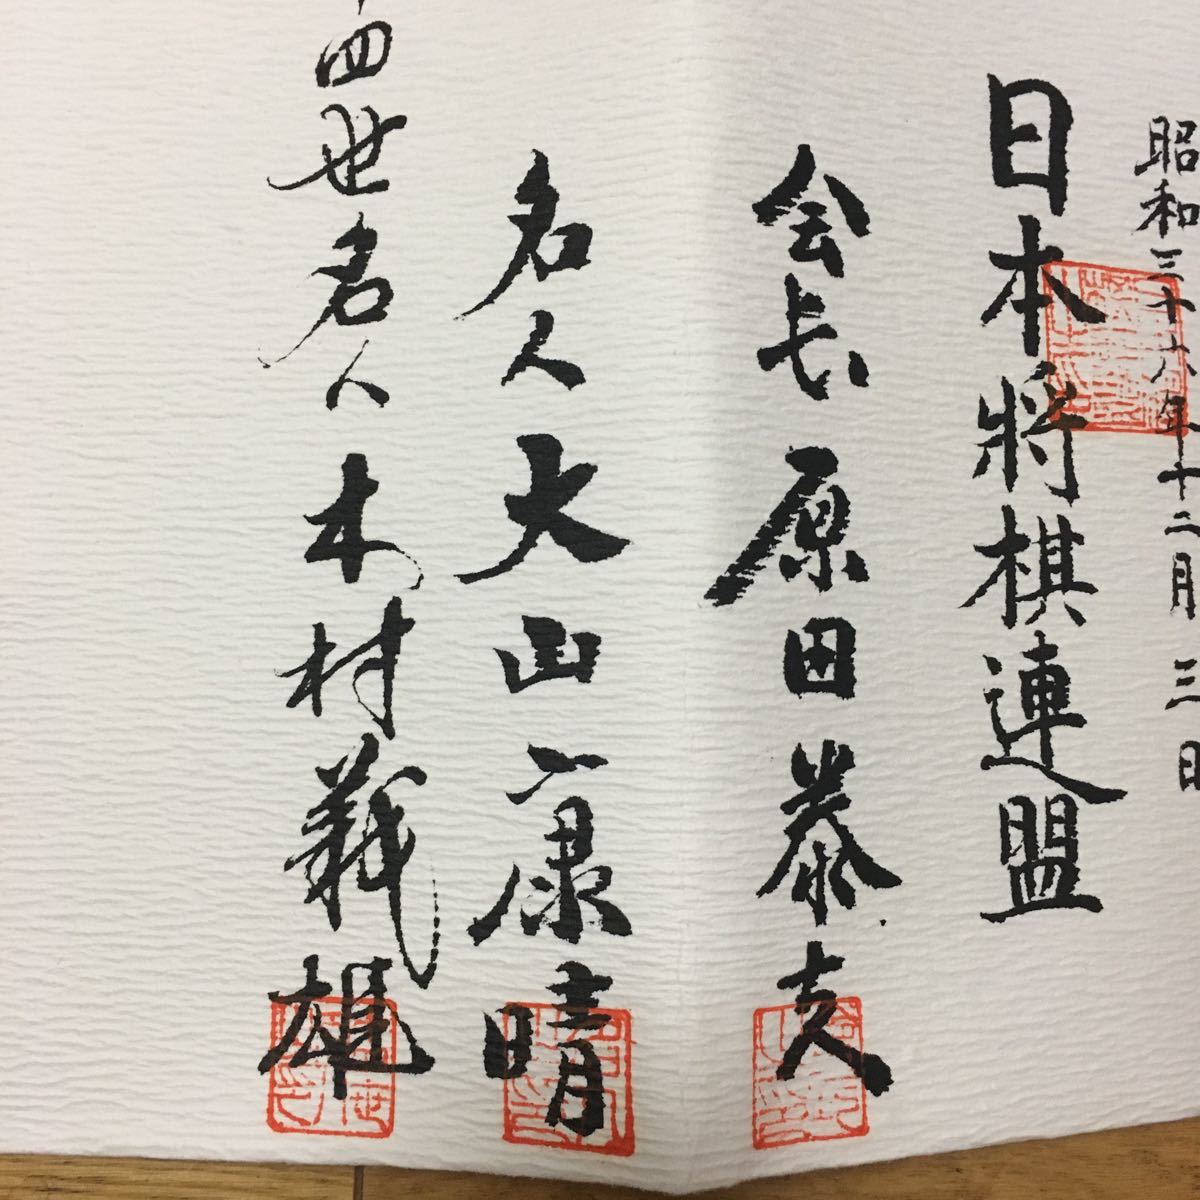 昭和三十八年十二月三日
日本将棋連盟
会長原田泰夫
名人大山康晴
四世名人木村義雄